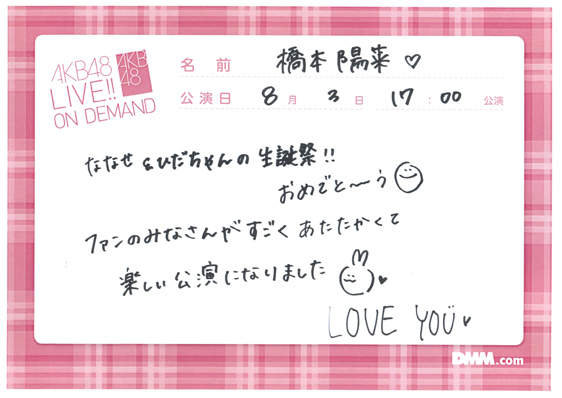 AKB48
LIVE!!
ON DEMAND
AKB
48
名前 橋本陽菜♡
公演日 8月3日 17:00 公演
ななせ&ひだちゃんの生誕祭!!
おめでと〜う
ファンのみなさんがすごくあたたかくて
楽しい公演になりました
LOVE YOU♥
DMM.com